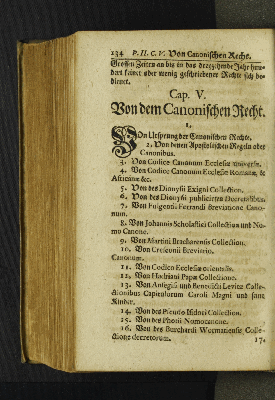 134 P. II. C. V. Von Canonischen Recht.
Grossen Zeiten an biß in das dreyzehnde Jahr hun-
dert keiner oder wenig geschriebener Rechte sich be-
dienet.
Cap. V.
Von dem Canonischen Recht.
1.
Von Ursprung der Canonischen Rechte.
2. Von denen Apostolischen Regeln oder
Canonibus.
3. Von Codice Canonum Ecclesiæ universæ.
4. Von Codice Canonum Ecclesiæ Romanæ, &
Africanæ &c.
5. Von des Dionysii Exigui Collection.
6. Von des Dionysii publicirten Decretalibus.
7. Von Fulgentii Ferrandi Breviatione Cano-
num.
8. Von Johannis Scholastici Collection und No-
mo Canone.
9. Von Martini Bracharensis Collection.
10. Von Cresconii Breviario.
Canonum.
11. Von Codice Ecclesiæ orientalis.
12. Von Hadriani Papæ Collectione.
13. Von Ansegisi und Benedicti Levitæ Colle-
ctionibus Capitulorum Caroli Magni und seiner
Kinder.
14. Von des Pseudo Isidori Collection.
15. Von des Photii Nomocanone.
16. Von des Burchardi Wormatiensis Colle-
ctione decretorum.
17.